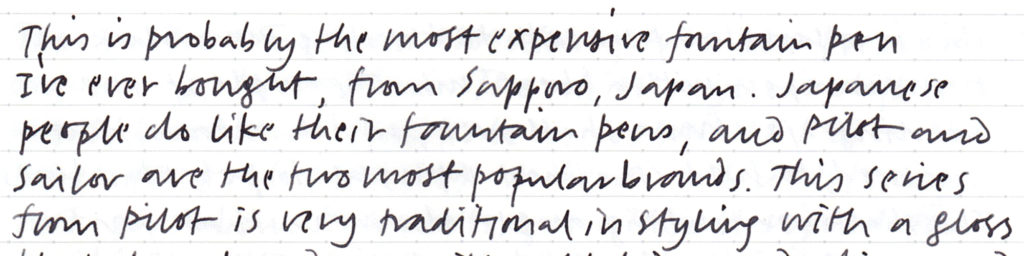 This is probably the most expensive fountain pen
I've ever bought, from Sapporo, Japan. Japanese
people do like their fountain pens, and Pilot and
Sailor are the two most popular brands. This series
from Pilot is very traditional in styling with a gloss